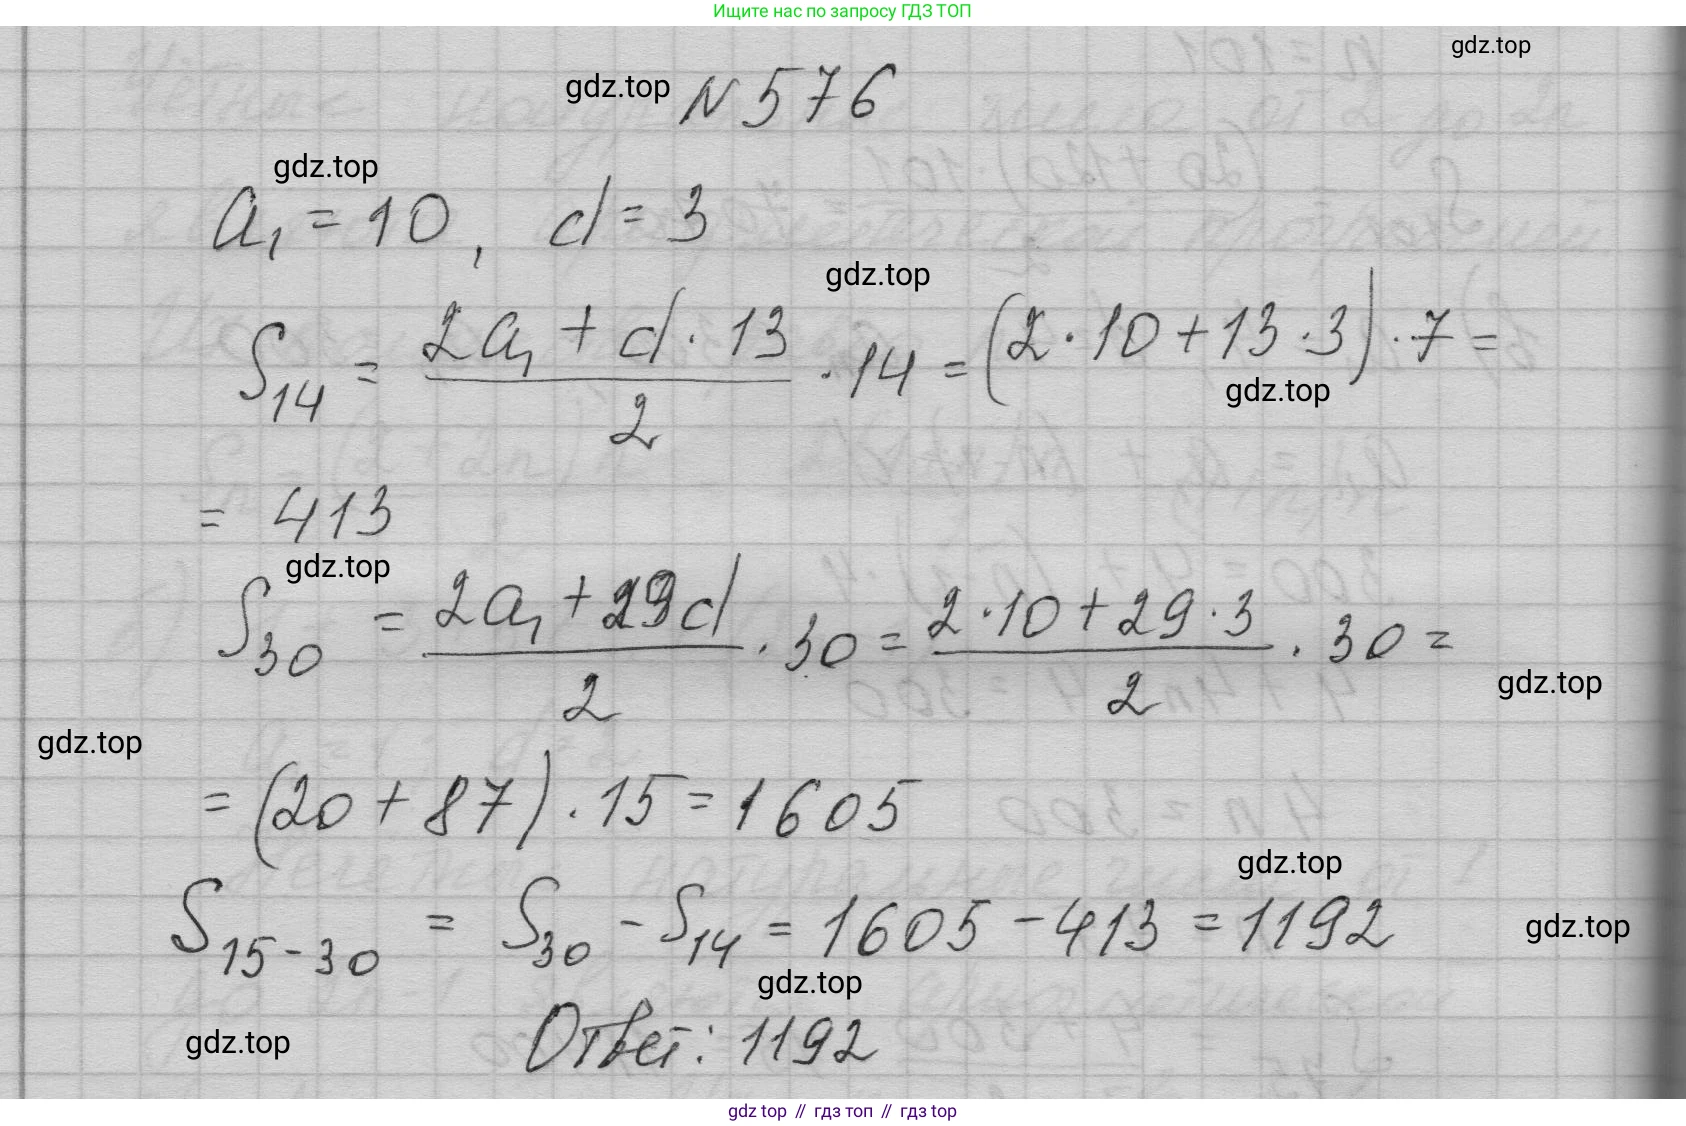 Ищите нас по запросу ГДЗ ТОП
gdz.top
gdz.top
№ 576
gdz.top
a₁ = 10, d = 3
gdz.top
S₁₄ = (2a₁ + d · 13)/2 · 14 = (2 · 10 + 13 · 3) · 7 =
gdz.top
= 413
gdz.top
S₃₀ = (2a₁ + 29d)/2 · 30 = (2 · 10 + 29 · 3)/2 · 30 =
gdz.top
gdz.top
= (20 + 87) · 15 = 1605
gdz.top
S₁₅₋₃₀ = S₃₀ - S₁₄ = 1605 - 413 = 1192
gdz.top
gdz.top
gdz.top
Ответ: 1192
gdz top // гдз топ // гдз top